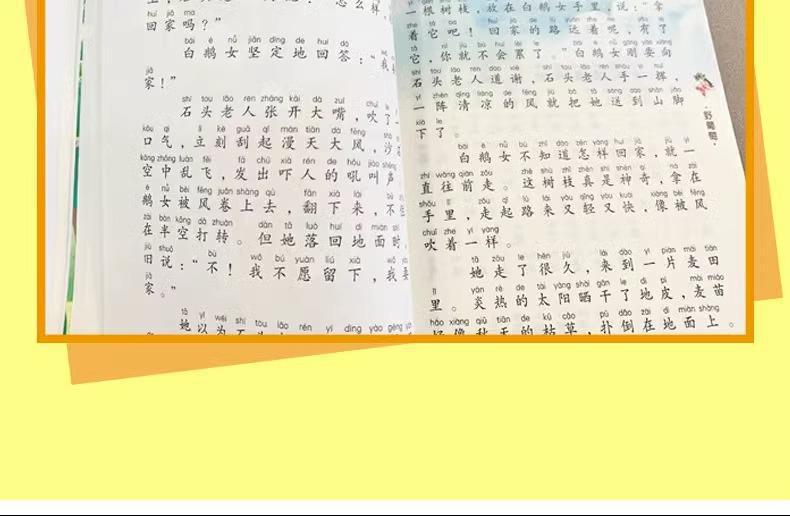 回家吗？”
bái é nǚ jiān dìng de huí dá
白鹅女坚定地回答：“我
jiā
家！”
shí tou lǎo rén zhāng kāi dà zuǐ chuī le
石头老人张开大嘴，吹了一
kǒu qì lì kè guā qǐ màn tiān dà fēng shā
口气，立刻刮起漫天大风，沙
kōng zhōng luàn fēi fā chū xià rén de hǒu jiào shēng
空中乱飞，发出吓人的吼叫声
é nǚ bèi fēng juǎn shàng qù fān xià lái bù
鹅女被风卷上去，翻下来，不
zài bàn kōng dǎ zhuàn dàn tā luò huí dì miàn shí
在半空打转。但她落回地面时，
jiù shuō bù wǒ bú yuàn liú xià wǒ yào
旧说：“不！我不愿留下，我要
jiā
家。”
tā yǐ wéi shí tou lǎo rén yí dìng yào gěng
她以为
一根树枝，放在白鹅女手里，说：“拿
zhe tā ba huí jiā de lù yuǎn zhe ne yǒu le
着它吧！回家的路远着呢，有了
tā nǐ jiù bú huì lèi le bái é nǚ gāng yào xiàng
它，你就不会累了。”白鹅女刚要向
shí tou lǎo rén dào xiè shí tou lǎo rén shǒu yì huī
石头老人道谢，石头老人手一挥，
yí zhèn qīng liáng de fēng jiù bǎ tā sòng dào shān jiǎo
一阵清凉的风就把她送到山脚
xià le
下了。
bái é nǚ bù zhī dào zěn yàng huí jiā jiù yì
白鹅女不知道怎样回家，就一
zhí wǎng qián zǒu zhè shù zhī zhēn shì shén qí ná zài
直往前走。这树枝真是神奇，拿在
shǒu lǐ zǒu qǐ lù lái yòu qīng yòu kuài xiàng bèi fēng
手里，走起路来又轻又快，像被风
chuī zhe yí yàng
吹着一样。
tā zǒu le hěn jiǔ lái dào yí piàn mài tián
她走了很久，来到一片麦田
lǐ yán rè de tài yáng shài gān le dì pí mài miáo
里。炎热的太阳晒干了地皮，麦苗
hǎo xiàng qiū tiān de kū cǎo pū dǎo zài dì miàn shàng
好像秋天的枯草，扑倒在地面上。
·野葡萄·